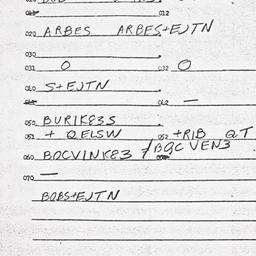 020 ARBES ARBES+EJTN
030
031 O 032 O
040 S+EJTN
062 —
050 BURIK83S
051 + QELSW 052 +RIB QT
060 BOCVINK83 / BQC VEN3
070 —
BOBS+EJTN